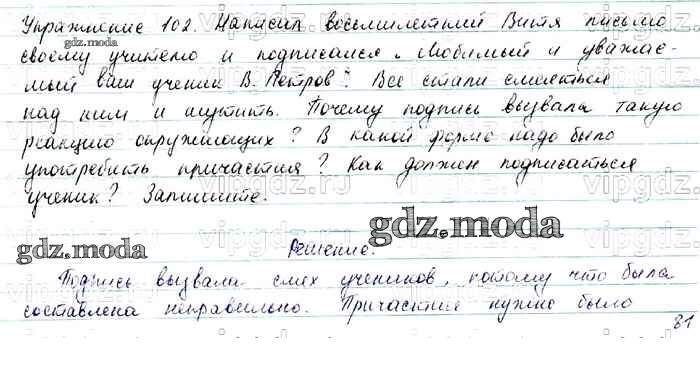 Упражнение 102. Написал восьмилетний Витя письмо
gdz.moda
своему учителю и подписался „Любимый и уважае-
мый ваш ученик В. Петров". Все стали смеяться
над ним и шутить. Почему подпись вызвала такую
реакцию окружающих? В какой форме надо было
употребить причастия? Как должен подписаться
ученик? Запишите.
gdz.moda
gdz.moda
Решение.
Подпись вызвала смех учеников, потому что была
составлена неправильно. Причастие нужно было
81
vipgdz.ru